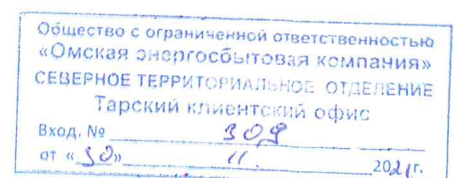 Общество с ограниченной ответственностью
«Омская энергосбытовая компания»
СЕВЕРНОЕ ТЕРРИТОРИАЛЬНОЕ ОТДЕЛЕНИЕ
Тарский клиентский офис
Вход. № 309
от «30» 11. 2021г.